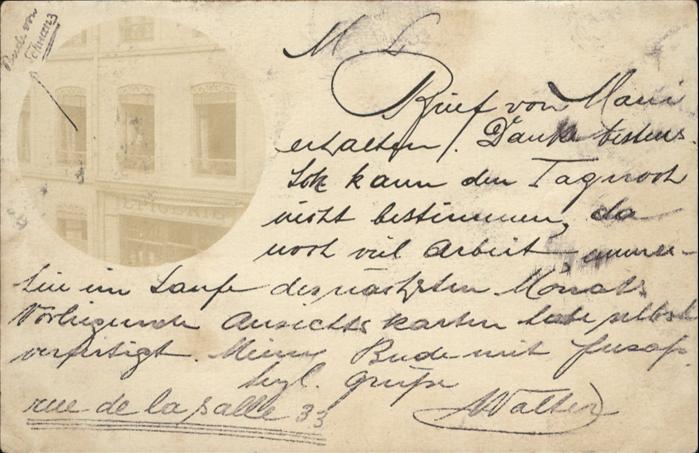 Bude von
Schwarz
M. L.
Brief von Mari
erhalten. Danke bestens.
Ich kann den Tag noch
nicht bestimmen, da
noch viel Arbeit
im Laufe des nächsten Monats
Vorliegende Ansichtskarten habe selbst
verfertigt. Meine Bude mit
herzl. Grüße
Walter
rue de la Salle 33
EPICERIE